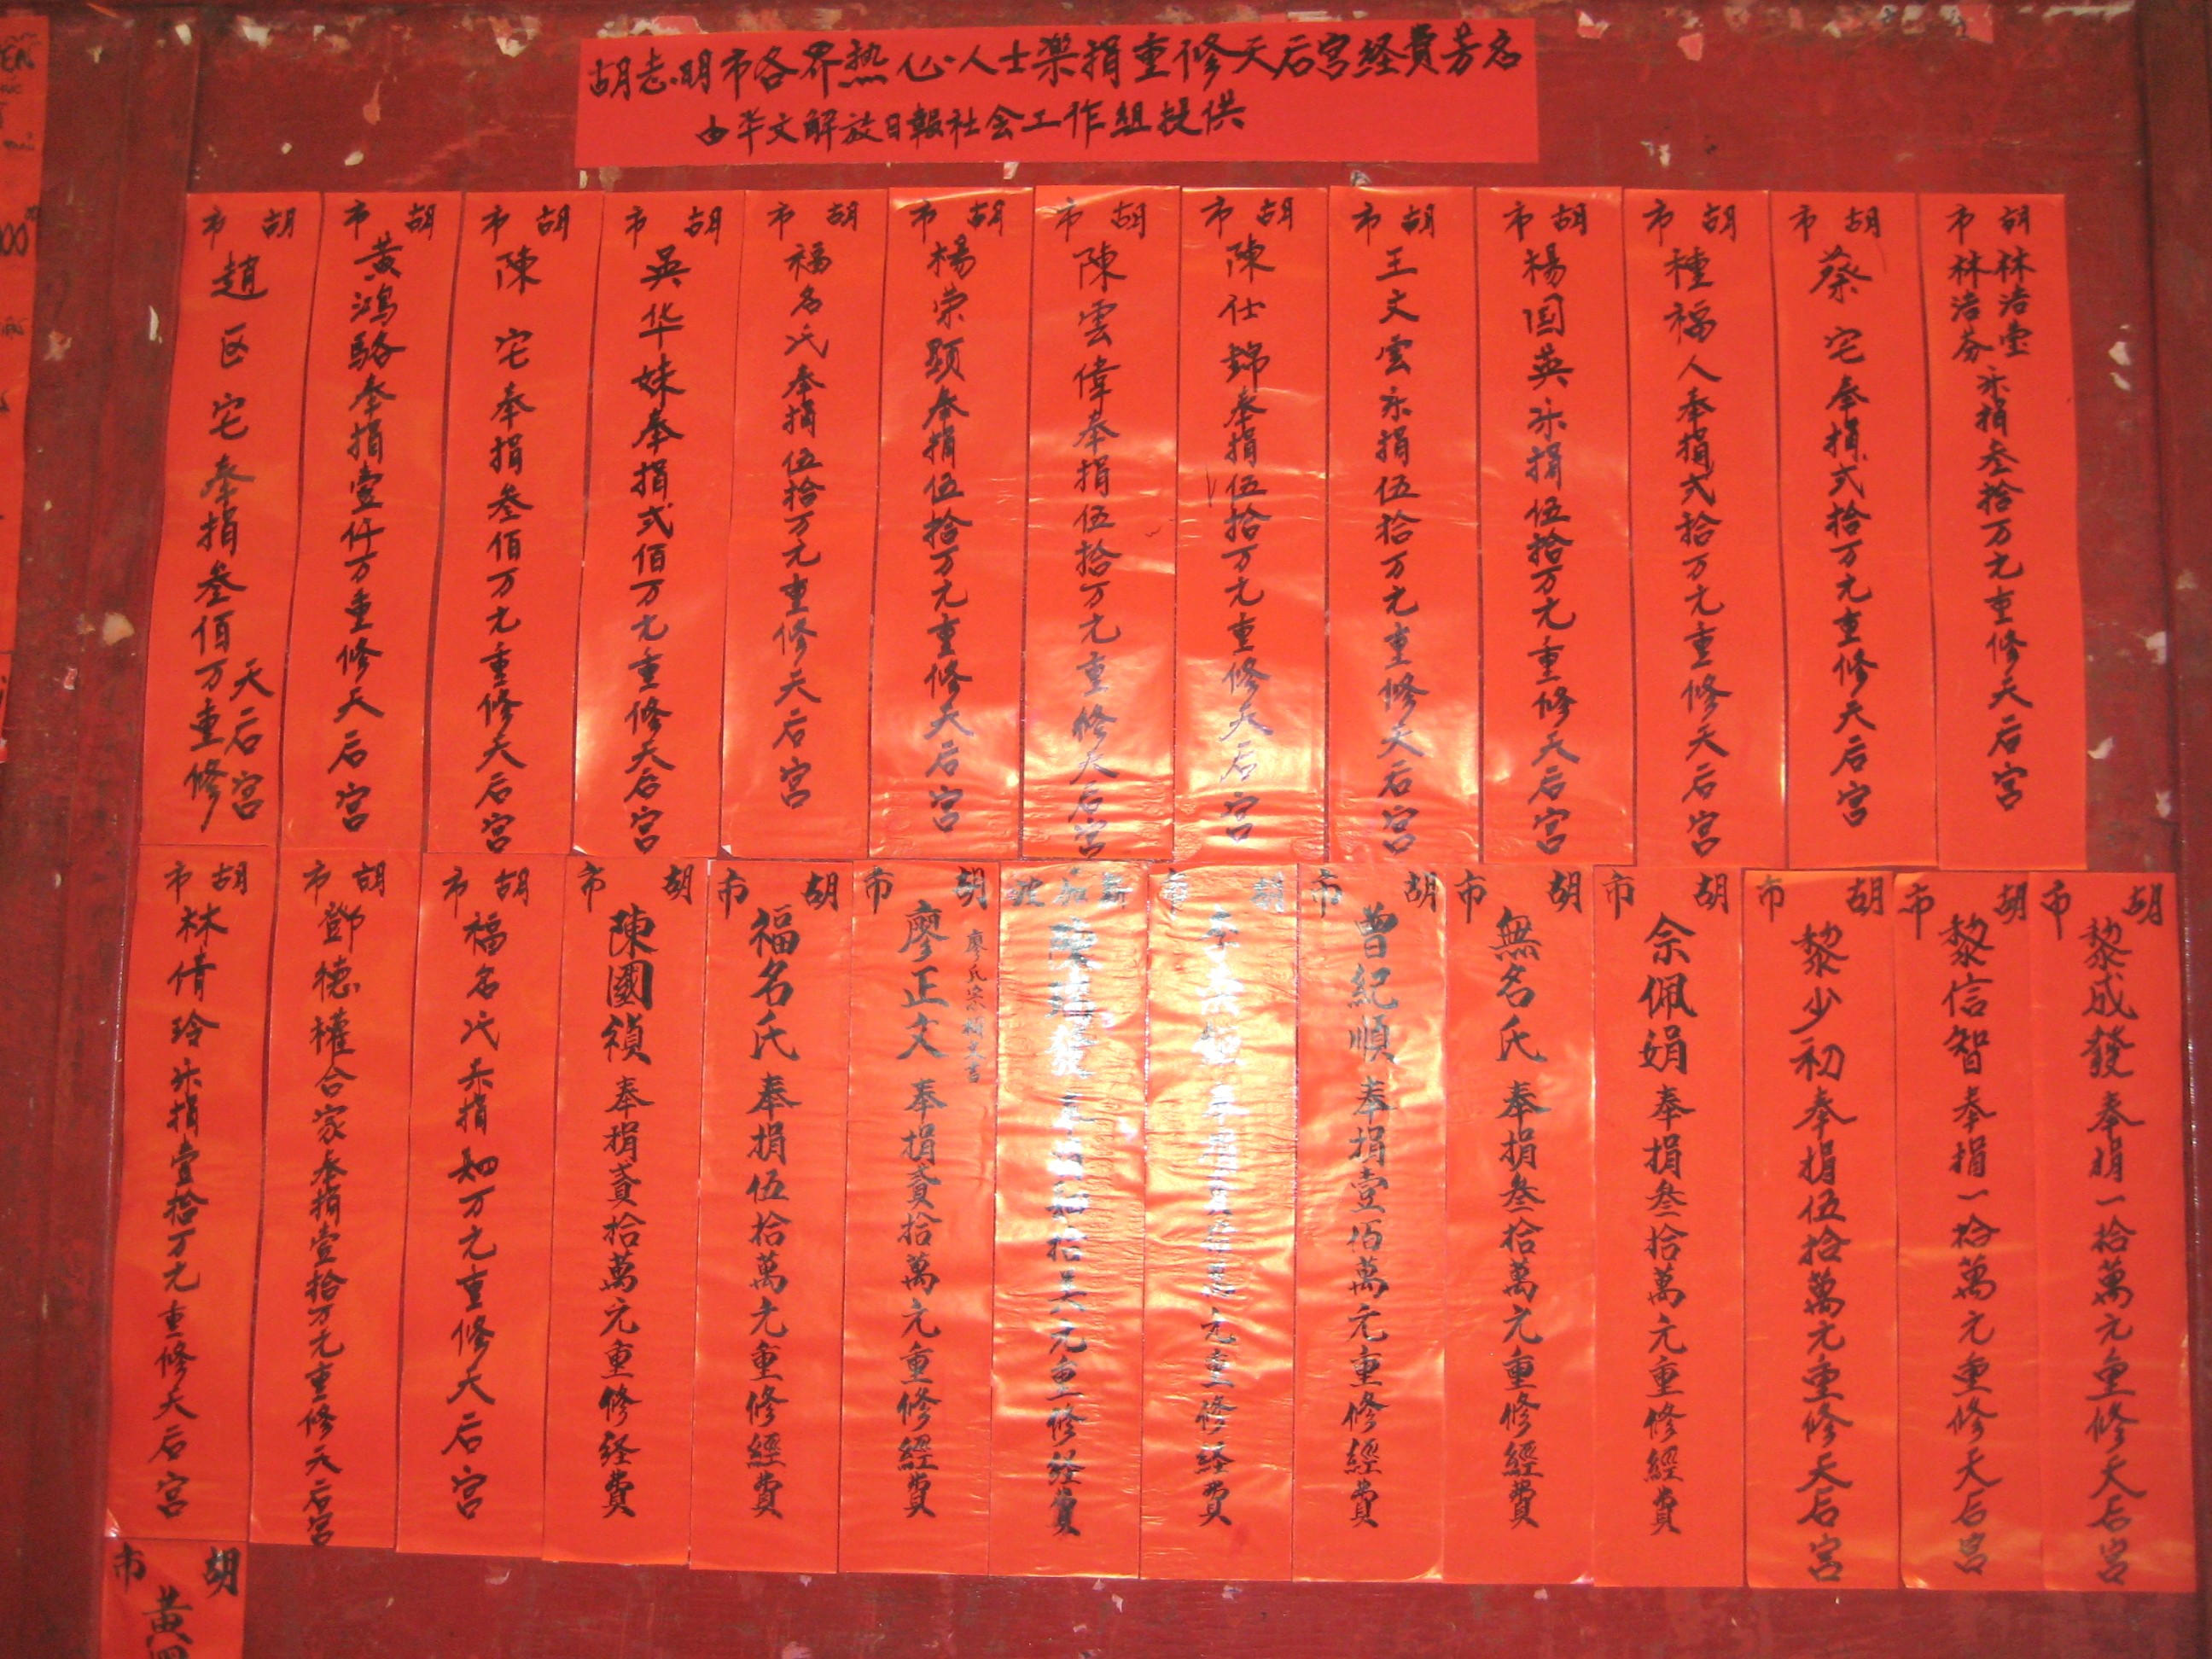 胡志明市各界热心人士樂捐重修天后宫経費芳名
由华文解放日報社会工作組提供
胡市
林浩壹
林浩芬
乐捐叁拾万元重修天后宫
胡市
蔡宅奉捐弍拾万元重修天后宫
胡市
種福人奉捐弍拾万元重修天后宫
胡市
楊国英乐捐伍拾万元重修天后宫
胡市
王文雲乐捐伍拾万元重修天后宫
胡市
陳仕錦奉捐伍拾万元重修天后宫
胡市
陳雲偉奉捐伍拾万元重修天后宫
胡市
楊荣頭奉捐伍拾万元重修天后宫
胡市
福名氏奉捐伍拾万元重修天后宫
胡市
吴华妹奉捐弍佰万元重修天后宫
胡市
陳宅奉捐叁佰万元重修天后宫
胡市
黄鴻駱奉捐壹仟万重修天后宫
胡市
趙区宅奉捐叁佰万重修
天后宫
胡市
黎成發奉捐一拾萬元重修天后宫
胡市
黎信智奉捐一拾萬元重修天后宫
胡市
黎少初奉捐伍拾萬元重修天后宫
胡市
佘佩娟奉捐叁拾萬元重修經費
胡市
無名氏奉捐叁拾萬元重修經費
胡市
曾紀順奉捐壹佰萬元重修經費
胡市
元重修経費
拾美元重修経費
胡市
廖氏宗
廖正文奉捐貳拾萬元重修經費
胡市
福名氏奉捐伍拾萬元重修經費
胡市
陳國禎奉捐貳拾萬元重修経費
胡市
福名氏乐捐四万元重修天后宫
胡市
鄧德權合家奉捐壹拾万元重修天后宫
胡市
林倩玲乐捐壹拾万元重修天后宫
胡市
黄